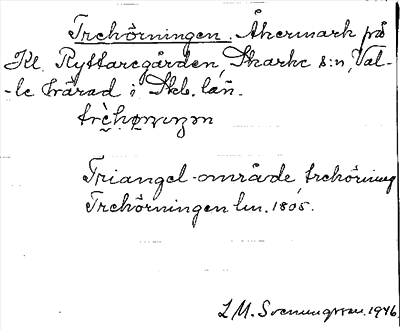 Trehörningen. Åkermark på
Kl. Ryttaregården, Skarke s:n, Val-
-le härad i Skb. län.
Triangel-område, trehörning
Trehörningen lm. 1805.
L. M. Svenungsson. 1946.